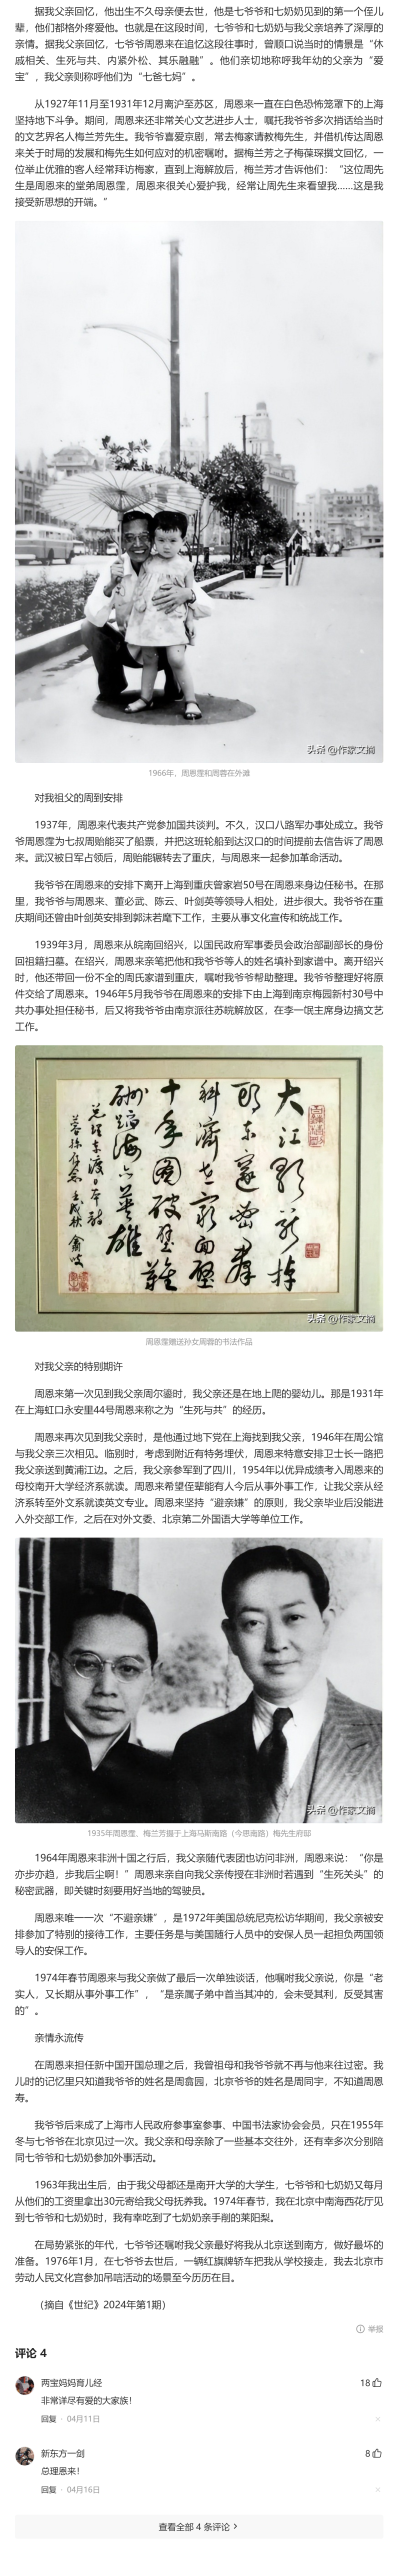 据我父亲回忆，他出生不久母亲便去世，他是七爷爷和七奶奶见到的第一个侄儿
辈，他们都格外疼爱他。也就是在这段时间，七爷爷和七奶奶与我父亲培养了深厚的
亲情。据我父亲回忆，七爷爷周恩来在追忆这段往事时，曾顺口说当时的情景是“休
戚相关、生死与共、内紧外松、其乐融融”。他们亲切地称呼我年幼的父亲为“爱
宝”，我父亲则称呼他们为“七爸七妈”。
从1927年11月至1931年12月离沪至苏区，周恩来一直在白色恐怖笼罩下的上海
坚持地下斗争。期间，周恩来还非常关心文艺进步人士，嘱托我爷爷多次捎话给当时
的文艺界名人梅兰芳先生。我爷爷喜爱京剧，常去梅家请教梅先生，并借机传达周恩
来关于时局的发展和梅先生如何应对的机密嘱咐。据梅兰芳之子梅葆琛撰文回忆，一
位举止优雅的客人经常拜访梅家，直到上海解放后，梅兰芳才告诉他们：“这位周先
生是周恩来的堂弟周恩霔，周恩来很关心爱护我，经常让周先生来看望我……这是我
接受新思想的开端。”
头条 @作家文摘
1966年，周恩霔和周蓉在外滩
对我祖父的周到安排
1937年，周恩来代表共产党参加国共谈判。不久，汉口八路军办事处成立。我爷
爷周恩霔为七叔周贻能买了船票，并把这班轮船到达汉口的时间提前去信告诉了周恩
来。武汉被日军占领后，周贻能辗转去了重庆，与周恩来一起参加革命活动。
我爷爷在周恩来的安排下离开上海到重庆曾家岩50号在周恩来身边任秘书。在那
里，我爷爷与周恩来、董必武、陈云、叶剑英等领导人相处，进步很大。我爷爷在重
庆期间还曾由叶剑英安排到郭沫若麾下工作，主要从事文化宣传和统战工作。
1939年3月，周恩来从皖南回绍兴，以国民政府军事委员会政治部副部长的身份
回祖籍扫墓。在绍兴，周恩来亲笔把他和我爷爷等人的姓名填补到家谱中。离开绍兴
时，他还带回一份不全的周氏家谱到重庆，嘱咐我爷爷帮助整理。我爷爷整理好将原
件交给了周恩来。1946年5月我爷爷在周恩来的安排下由上海到南京梅园新村30号中
共办事处担任秘书，后又将我爷爷由南京派往苏皖解放区，在李一氓主席身边搞文艺
工作。
大江歌罢掉
头东邃密群
科济世穷面壁
十年图破壁难
酬蹈海亦英雄
总理东渡日本诗
蓉孙存念 壬戌秋 翕皎
头条 @作家文摘
周恩霔赠送孙女周蓉的书法作品
对我父亲的特别期许
周恩来第一次见到我父亲周尔鎏时，我父亲还是在地上爬的婴幼儿。那是1931年
在上海虹口永安里44号周恩来称之为“生死与共”的经历。
周恩来再次见到我父亲时，是他通过地下党在上海找到我父亲，1946年在周公馆
与我父亲三次相见。临别时，考虑到附近有特务埋伏，周恩来特意安排卫士长一路把
我父亲送到黄浦江边。之后，我父亲参军到了四川，1954年以优异成绩考入周恩来的
母校南开大学经济系就读。周恩来希望侄辈能有人今后从事外事工作，让我父亲从经
济系转至外文系就读英文专业。周恩来坚持“避亲嫌”的原则，我父亲毕业后没能进
入外交部工作，之后在对外文委、北京第二外国语大学等单位工作。
头条 @作家文摘
1935年周恩霔、梅兰芳摄于上海马斯南路（今思南路）梅先生府邸
1964年周恩来非洲十国之行后，我父亲随代表团也访问非洲，周恩来说：“你是
亦步亦趋，步我后尘啊！”周恩来亲自向我父亲传授在非洲时若遇到“生死关头”的
秘密武器，即关键时刻要用好当地的驾驶员。
周恩来唯一一次“不避亲嫌”，是1972年美国总统尼克松访华期间，我父亲被安
排参加了特别的接待工作，主要任务是与美国随行人员中的安保人员一起担负两国领
导人的安保工作。
1974年春节周恩来与我父亲做了最后一次单独谈话，他嘱咐我父亲说，你是“老
实人，又长期从事外事工作”，“是亲属子弟中首当其冲的，会未受其利，反受其害
的”。
亲情永流传
在周恩来担任新中国开国总理之后，我曾祖母和我爷爷就不再与他来往过密。我
儿时的记忆里只知道我爷爷的姓名是周翕园，北京爷爷的姓名是周同宇，不知道周恩
寿。
我爷爷后来成了上海市人民政府参事室参事、中国书法家协会会员，只在1955年
冬与七爷爷在北京见过一次。我父亲和母亲除了一些基本交往外，还有幸多次分别陪
同七爷爷和七奶奶参加外事活动。
1963年我出生后，由于我父母都还是南开大学的大学生，七爷爷和七奶奶又每月
从他们的工资里拿出30元寄给我父母抚养我。1974年春节，我在北京中南海西花厅见
到七爷爷和七奶奶时，我有幸吃到了七奶奶亲手削的莱阳梨。
在局势紧张的年代，七爷爷还嘱咐我父亲最好将我从北京送到南方，做好最坏的
准备。1976年1月，在七爷爷去世后，一辆红旗牌轿车把我从学校接走，我去北京市
劳动人民文化宫参加吊唁活动的场景至今历历在目。
（摘自《世纪》2024年第1期）
举报
评论 4
两宝妈妈育儿经
18
非常详尽有爱的大家族！
回复 · 04月11日
新东方一剑
8
总理恩来！
回复 · 04月16日
查看全部 4 条评论